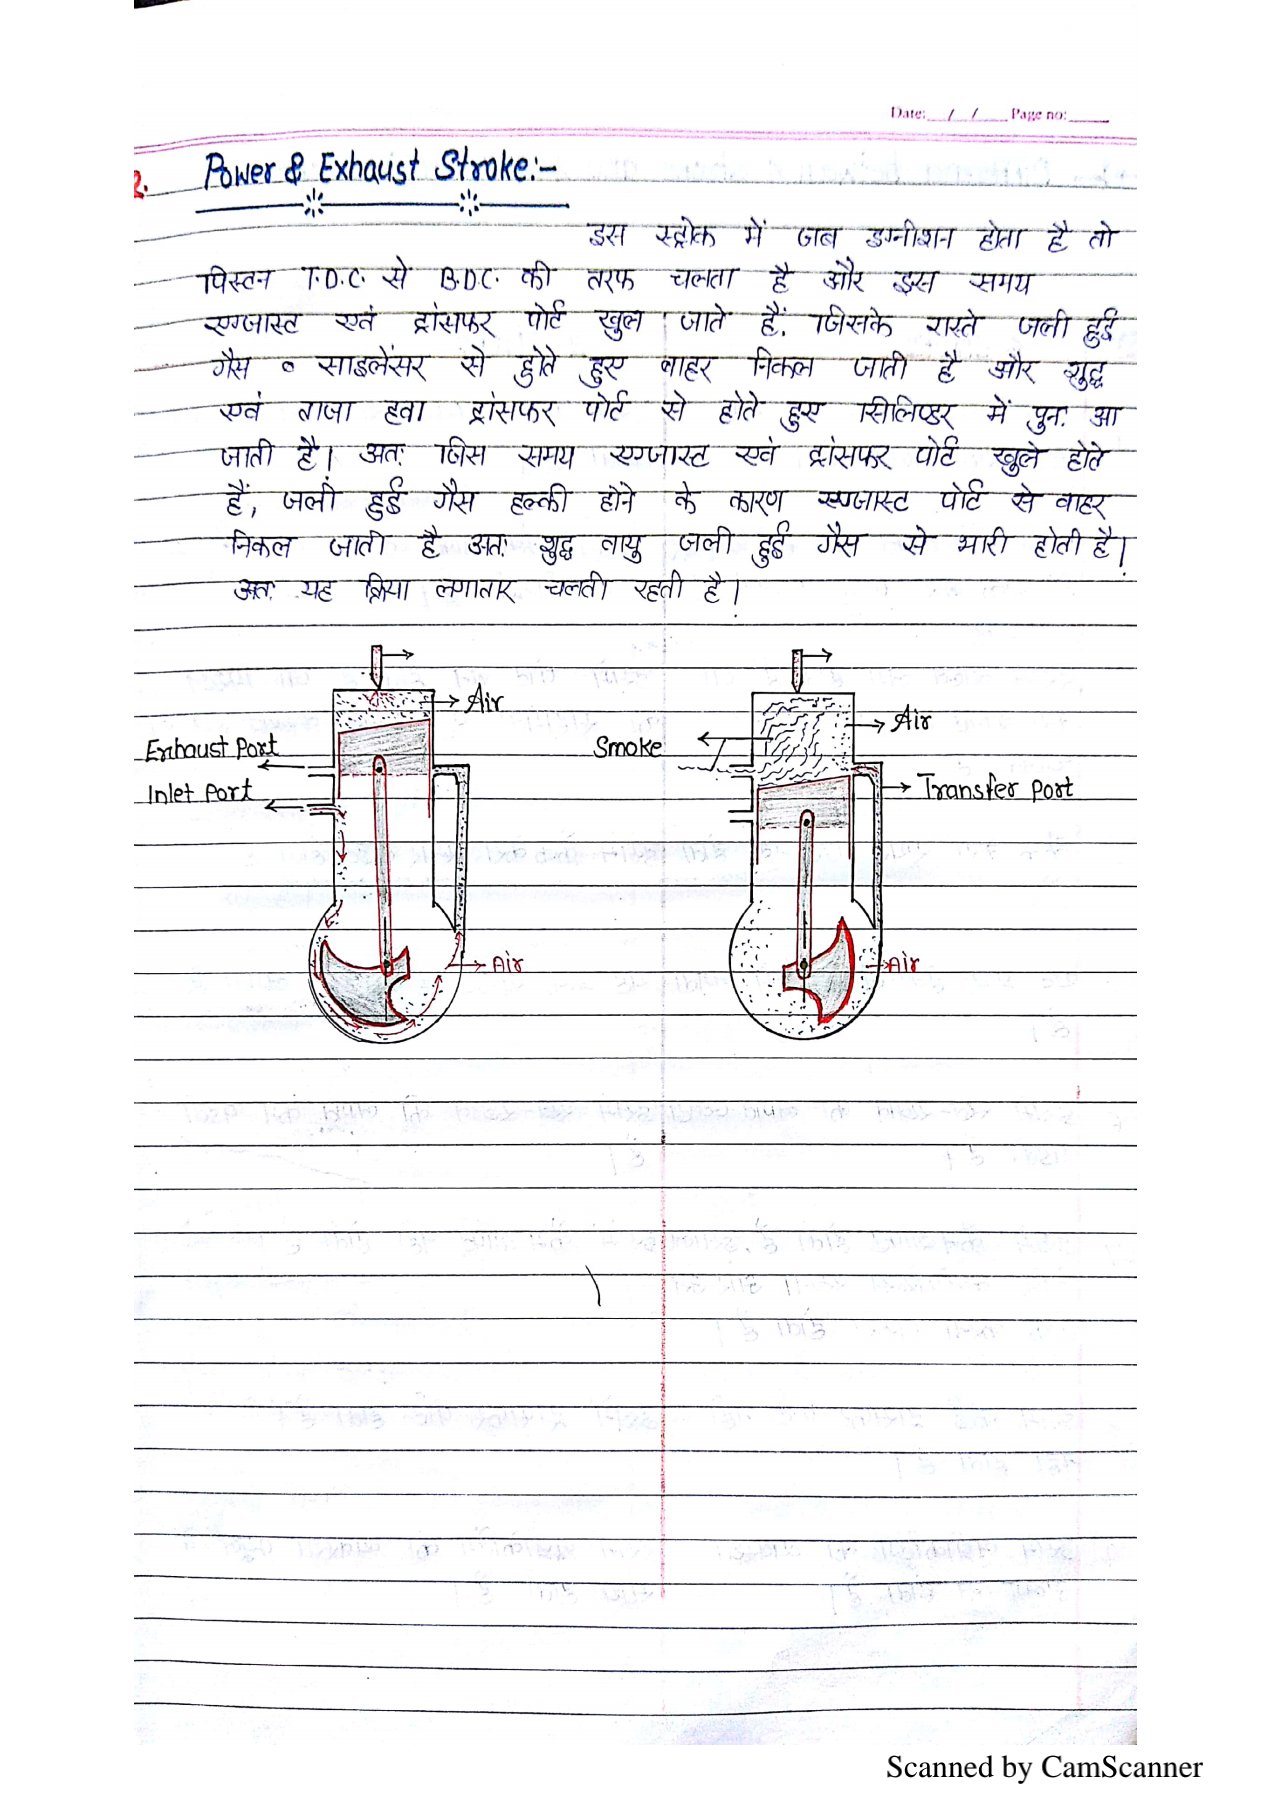 Date: / / Page no:
2. Power & Exhaust Stroke:-
इस स्ट्रोक में जब इग्नीशन होता है तो
पिस्टन T.D.C. से B.D.C. की तरफ चलता है और इस समय
एग्जास्ट एवं ट्रांसफर पोर्ट खुल जाते हैं. जिसके रास्ते जली हुई
गैस साइलेंसर से होते हुए बाहर निकल जाती है और शुद्ध
एवं ताजा हवा ट्रांसफर पोर्ट से होते हुए सिलिण्डर में पुनः आ
जाती है। अतः जिस समय एग्जास्ट एवं ट्रांसफर पोर्ट खुले होते
हैं, जली हुई गैस हल्की होने के कारण एग्जास्ट पोर्ट से बाहर
निकल जाती है अतः शुद्ध वायु जली हुई गैस से भारी होती है।
अतः यह क्रिया लगातार चलती रहती है।
Air
Exhaust Port
Inlet Port
Air
Air
Smoke
Transfer Port
Air
Scanned by CamScanner